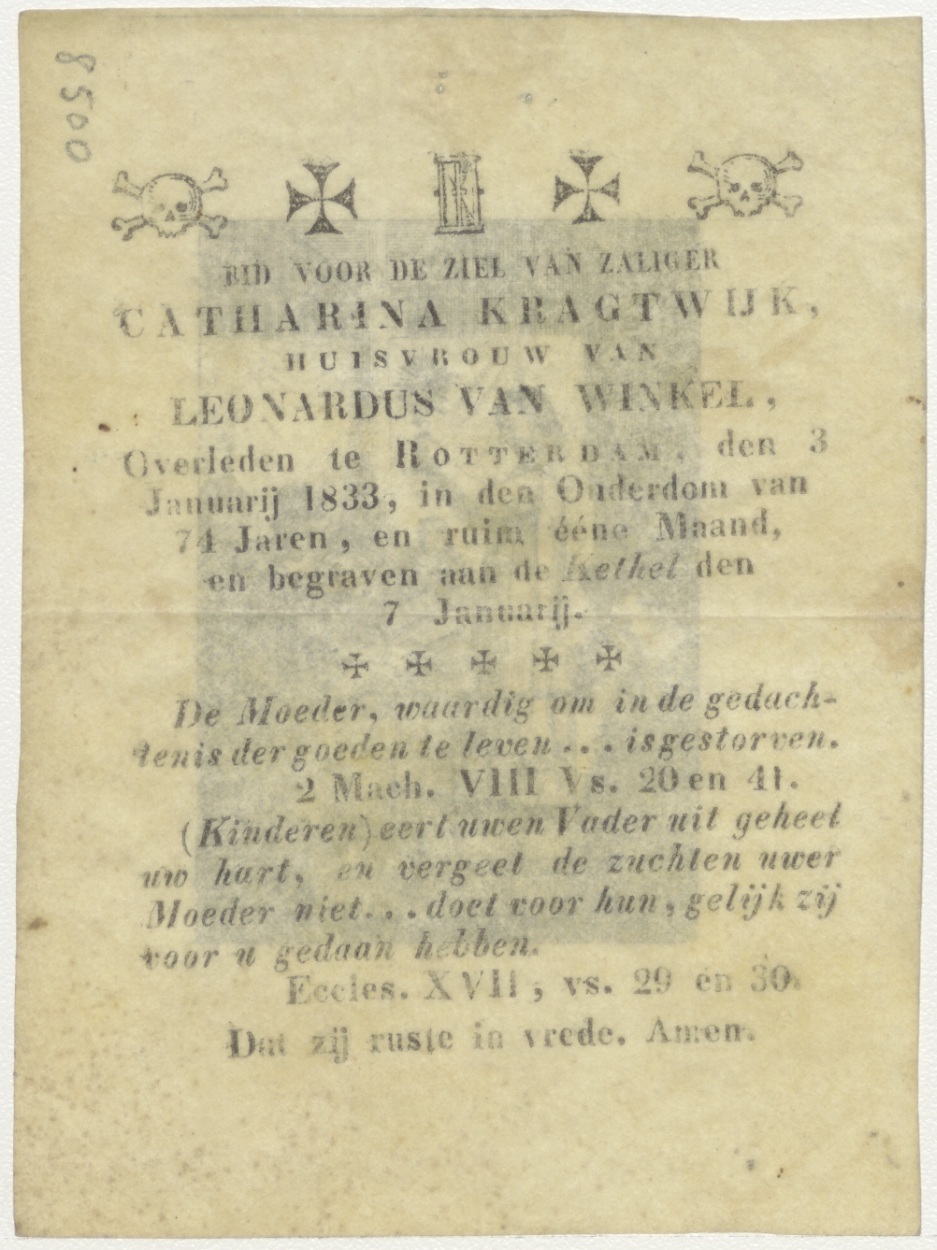 8500
BID VOOR DE ZIEL VAN ZALIGER
CATHARINA KRAGTWIJK,
HUISVROUW VAN
LEONARDUS VAN WINKEL,
Overleden te ROTTERDAM, den 3
Januarij 1833, in den Ouderdom van
74 Jaren, en ruim ééne Maand,
en begraven aan de Kethel den
7 Januarij.
De Moeder, waardig om in de gedach-
tenis der goeden te leven... is gestorven.
2 Mach. VIII Vs. 20 en 41.
(Kinderen) eert uwen Vader uit geheel
uw hart, en vergeet de zuchten uwer
Moeder niet... doet voor hun, gelijk zij
voor u gedaan hebben.
Eccles. XVII, vs. 29 en 30.
Dat zij ruste in vrede. Amen.